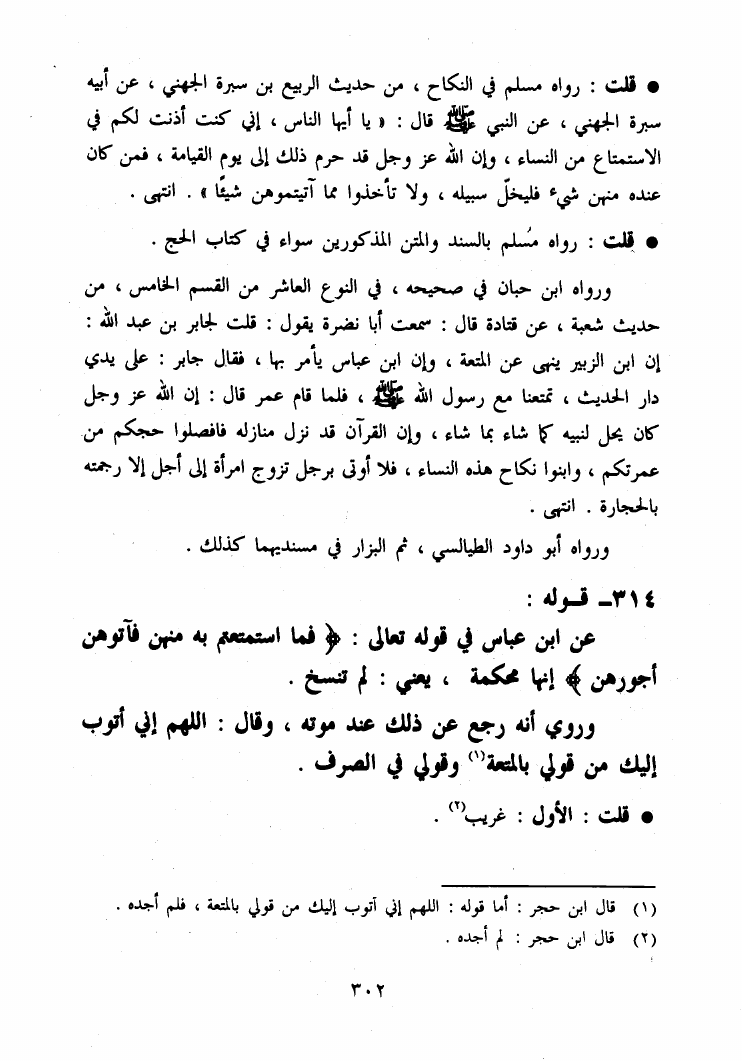 ● قلت : رواه مسلم في النكاح ، من حديث الربيع بن سبرة الجهني ، عن أبيه
سبرة الجهني ، عن النبي ﷺ قال : « يا أيها الناس ، إني كنت أذنت لكم في
الاستمتاع من النساء ، وإن الله عز وجل قد حرم ذلك إلى يوم القيامة ، فمن كان
عنده منهن شيء فليخلّ سبيله ، ولا تأخذوا مما آتيتموهن شيئًا » . انتهى .
● قلت : رواه مسلم بالسند والمتن المذكورين سواء في كتاب الحج .
ورواه ابن حبان في صحيحه ، في النوع العاشر من القسم الخامس ، من
حديث شعبة ، عن قتادة قال : سمعت أبا نضرة يقول : قلت لجابر بن عبد الله :
إن ابن الزبير ينهى عن المتعة ، وإن ابن عباس يأمر بها ، فقال جابر : على يدي
دار الحديث ، تمتعنا مع رسول الله ﷺ ، فلما قام عمر قال : إن الله عز وجل
كان يحل لنبيه كما شاء بما شاء ، وإن القرآن قد نزل منازله فافصلوا حجكم من
عمرتكم ، وابنوا نكاح هذه النساء ، فلا أوتى برجل تزوج امرأة إلى أجل إلا رجمته
بالحجارة . انتهى .
ورواه أبو داود الطيالسي ، ثم البزار في مسنديهما كذلك .
٣١٤ــ قـوله :
عن ابن عباس في قوله تعالى : ﴿ فما استمتعتم به منهن فآتوهن
أجورهن ﴾ إنها محكمة ، يعني : لم تنسخ .
وروي أنه رجع عن ذلك عند موته ، وقال : اللهم إني أتوب
إليك من قولي بالمتعة(١) وقولي في الصرف .
● قلت : الأول : غريب(٢) .
(١) قال ابن حجر : أما قوله : اللهم إني أتوب إليك من قولي بالمتعة ، فلم أجده .
(٢) قال ابن حجر : لم أجده .
٣٠٢